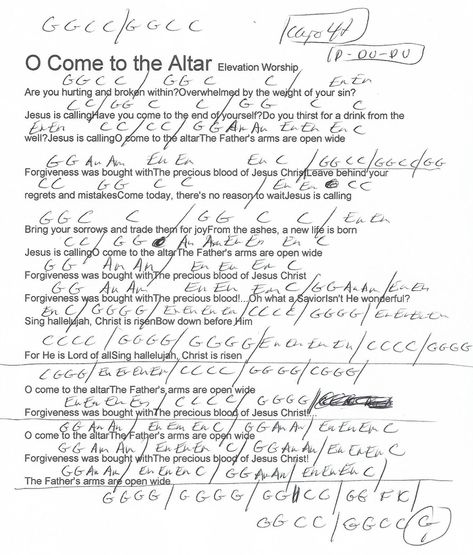 GGCC/GGCC
Capo 4th
D-DU-DU
O Come to the Altar Elevation Worship
GGCC / GG C C / Em Em
Are you hurting and broken within?Overwhelmed by the weight of your sin?
CC / GG C C / G G C C /
Jesus is callingHave you come to the end of yourself?Do you thirst for a drink from the
Em Em / CC / CC / GG Am Am Em Em Em C
well?Jesus is callingO come to the altarThe Father's arms are open wide
GG Am Am Em Em Em C / GGCC/GGCC/GG
Forgiveness was bought withThe precious blood of Jesus ChristLeave behind your
CC GG C C / Em Em CC
regrets and mistakesCome today, there's no reason to waitJesus is calling
GGC C / GG C C / Em Em
Bring your sorrows and trade them for joyFrom the ashes, a new life is born
CC / GG Am Am Em Em Em C
Jesus is callingO come to the altarThe Father's arms are open wide
GG Am Am / Em Em Em C
Forgiveness was bought withThe precious blood of Jesus Christ
GG Am Am Em Em Em C / GG Am Am / Em Em
Forgiveness was bought withThe precious blood!...Oh what a SaviorIsn't He wonderful?
Em C / GGGG / Em Em Em Em / CCCC / GGGG / Em Em Em Em
Sing hallelujah, Christ is risenBow down before Him
CCCC / GGGG / GGGG / Em Em Em Em / CCCC / GGGG
For He is Lord of allSing hallelujah, Christ is risen
CGGG / Em Em Em Em / CCCC / GGGG / CGGG /
O come to the altarThe Father's arms are open wide
Em Em Em Em / CCCC / GGGG /
Forgiveness was bought withThe precious blood of Jesus Christ!...
GG Am Am / Em Em Em C / GG Am Am / Em Em Em C
O come to the altarThe Father's arms are open wide
GG Am Am / Em Em Em C / GG Am Am / Em Em Em C
Forgiveness was bought withThe precious blood of Jesus Christ!
GG Am Am / Em Em Em C / GG Am Am / Em Em Em C
The Father's arms are open wide
GGGG / GGGG / GG CC / GG
GGCC / GGCC G